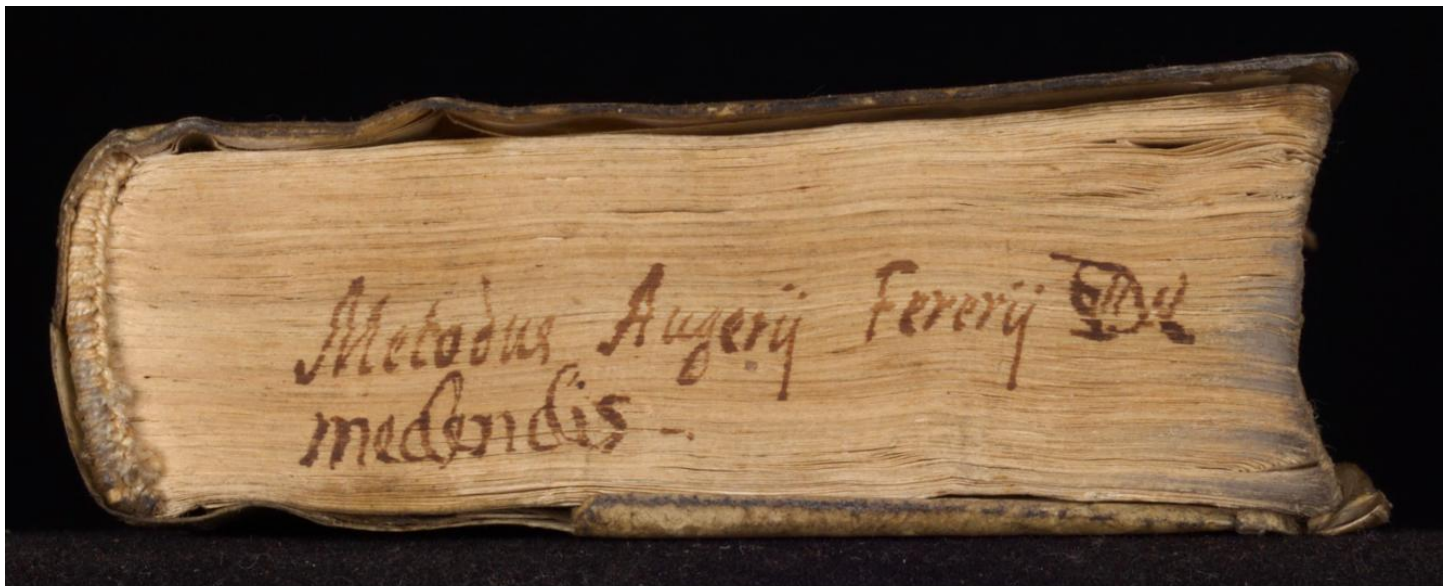 Metodus Augerij Fererij
medendis -